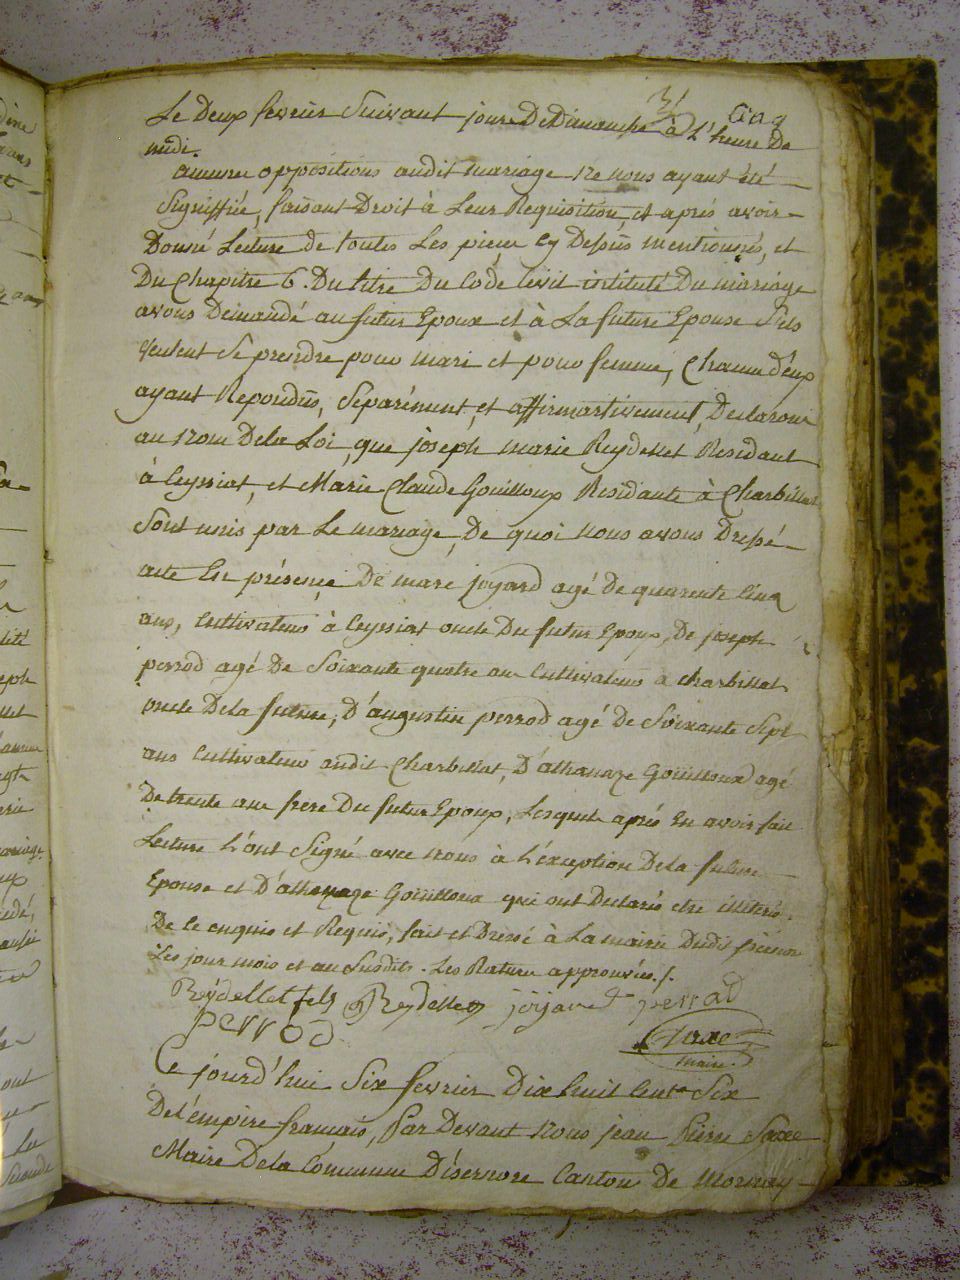 3 / Cinq
Le Deux fevrier Suivant jour De Dimanche à L'heure De
midi.
aucunes oppositions audit mariage ne nous ayant été
Signiffiée, faisant Droit à Leur Requisition et après avoir
Donné Lecture de toutes Les pieces cy Dessus mentionnés, et
Du Chapitre 6. Du titre Du Code Civil intitulé Du mariage
avons Demandé au futur Epoux et à La future Epouse S'ils
veulent Se prendre pour mari et pour femme, Chacun d'eux
ayant Repondus, Séparément, et affirmartivement, Declarons
au nom De la Loi, que joseph marie Reydellet Residant
à Ceyssiat, et Marie Claude Goüilloux Residante à Charbillat
Sont unis par Le mariage, De quoi nous avons Dressé
acte En présence De marc joyard agé de quarente Cinq
ans, Cultivateur à Ceyssiat oncle Du futur Epoux, De joseph
perrod agé De Soixante quatre ans Cultivateur à Charbillat
oncle De la future, D'augustin perrod agé De Soixante Sept
ans Cultivateur audit Charbillat, D'athanaze Goüilloux agé
De trente ans frere Du futur Epoux, Lesquels après En avoir fait
Lecture L'ont Signé avec nous à L'éxception De la future
Epouse et D'athanaze Goüilloux qui ont Declarés etre illiterés
De ce enquis et Requis, fait et Dressé à La mairie Dudit
Les jour mois et an Susdits. Les Rature approuvées ./.
Reydellet fils Reydellet joyard perrod
perrod Saxe
maire
Ce jourd'hui Six fevrier Dix huit Cent Six
De L'empire francais, Par Devant nous jean Pierre Saxe
Maire De la Commune D'isernore Canton De Mornay